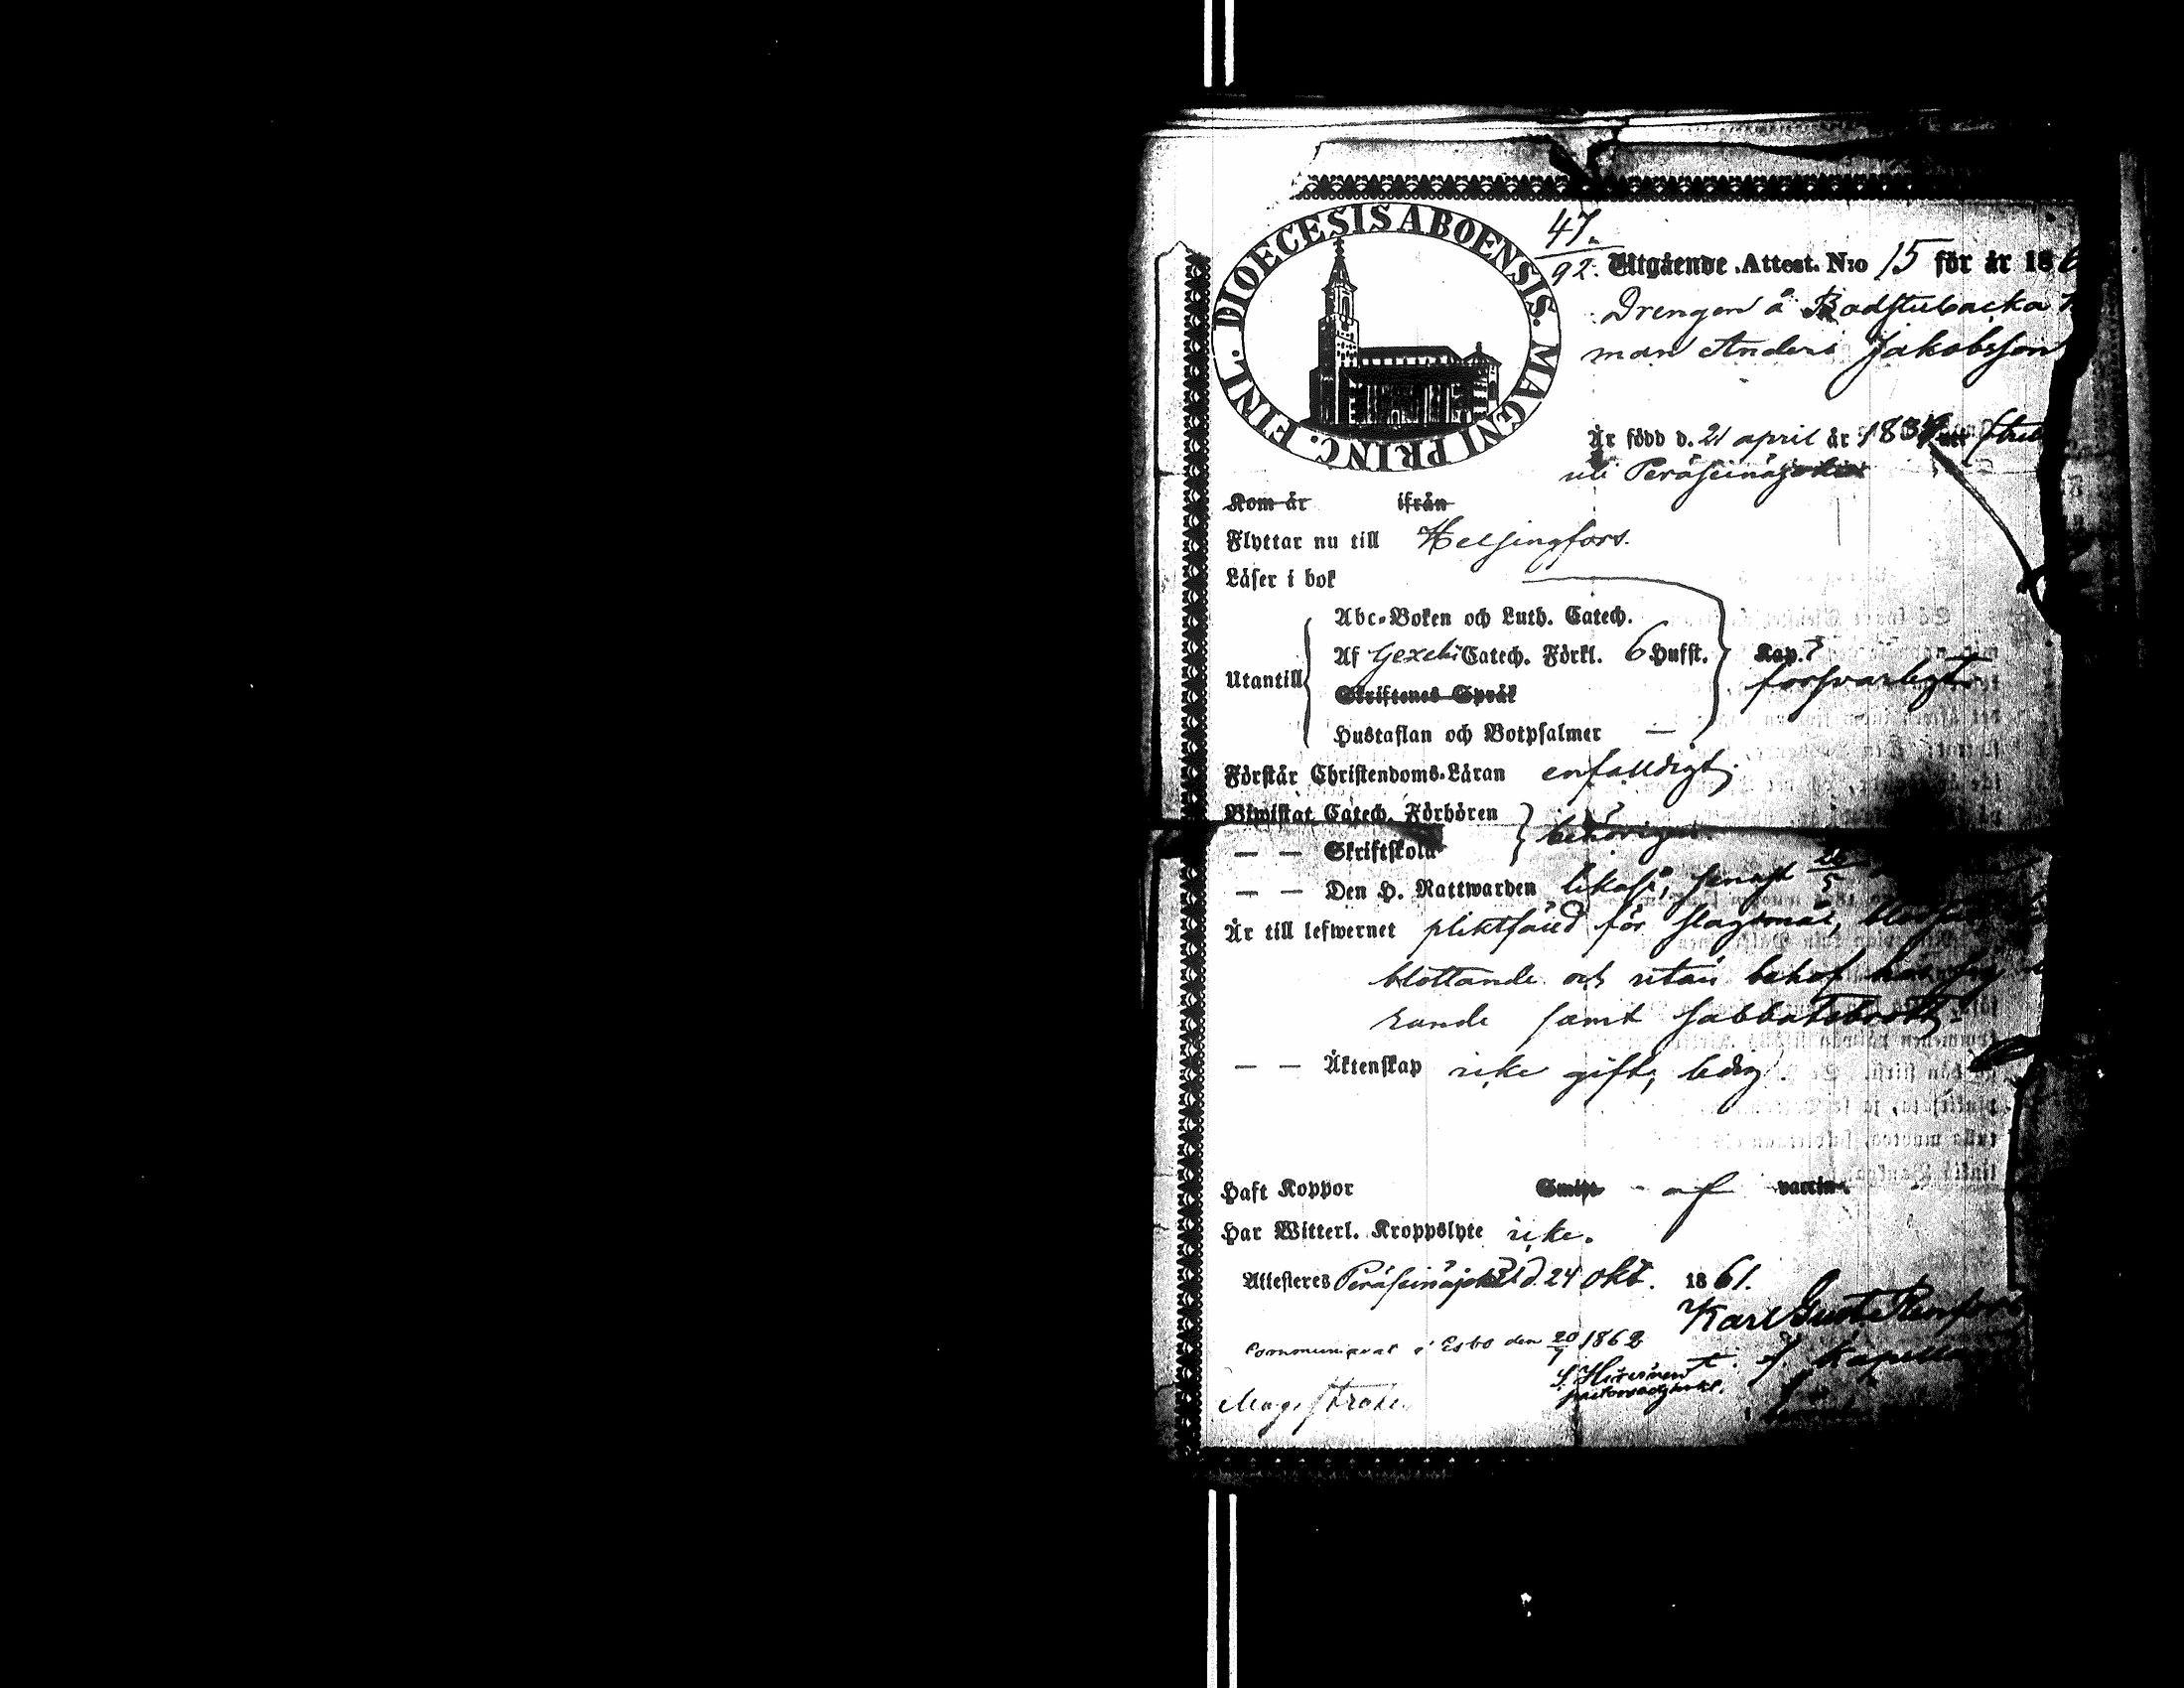 DIOECESIS ABOENSIS. MAGNI PRINC. FINL.
47.
92.
Utgående Attest. N:o 15 för år 186
Drengen å Badstubacka
man Anders Jakobsson
Är född d. 21 april år 183
uti Peräseinäjoki
Kom år ifrån
Flyttar nu till Helsingfors.
Läser i bok
Abc-Boken och Luth. Catech.
Af Gezelii Catech. Förkl. 6 Hufst. Kap.
Utantill
försvarligt
Skriftenes Språk
Hustaflan och Botpsalmer —
Förstår Christendoms-Läran enfalldigt.
Biwistat Catech. Förhören
behörigen
— — Skriftskola
— — Den H. Nattwarden likaså, senast
Är till lefwernet pliktfälld för slagsmål,
blottande och utan behof
rande samt sabbatsbrott.
— — Äktenskap icke gift, ledig.
Haft Koppor af vaccin
Har Witterl. Kroppslyte icke.
Attesteres Peräseinäjoki d. 24 okt. 1861.
Karl Gustaf
Communicerat i Esbo den 20/7 1862
t. f. Kapellan
Magistrate